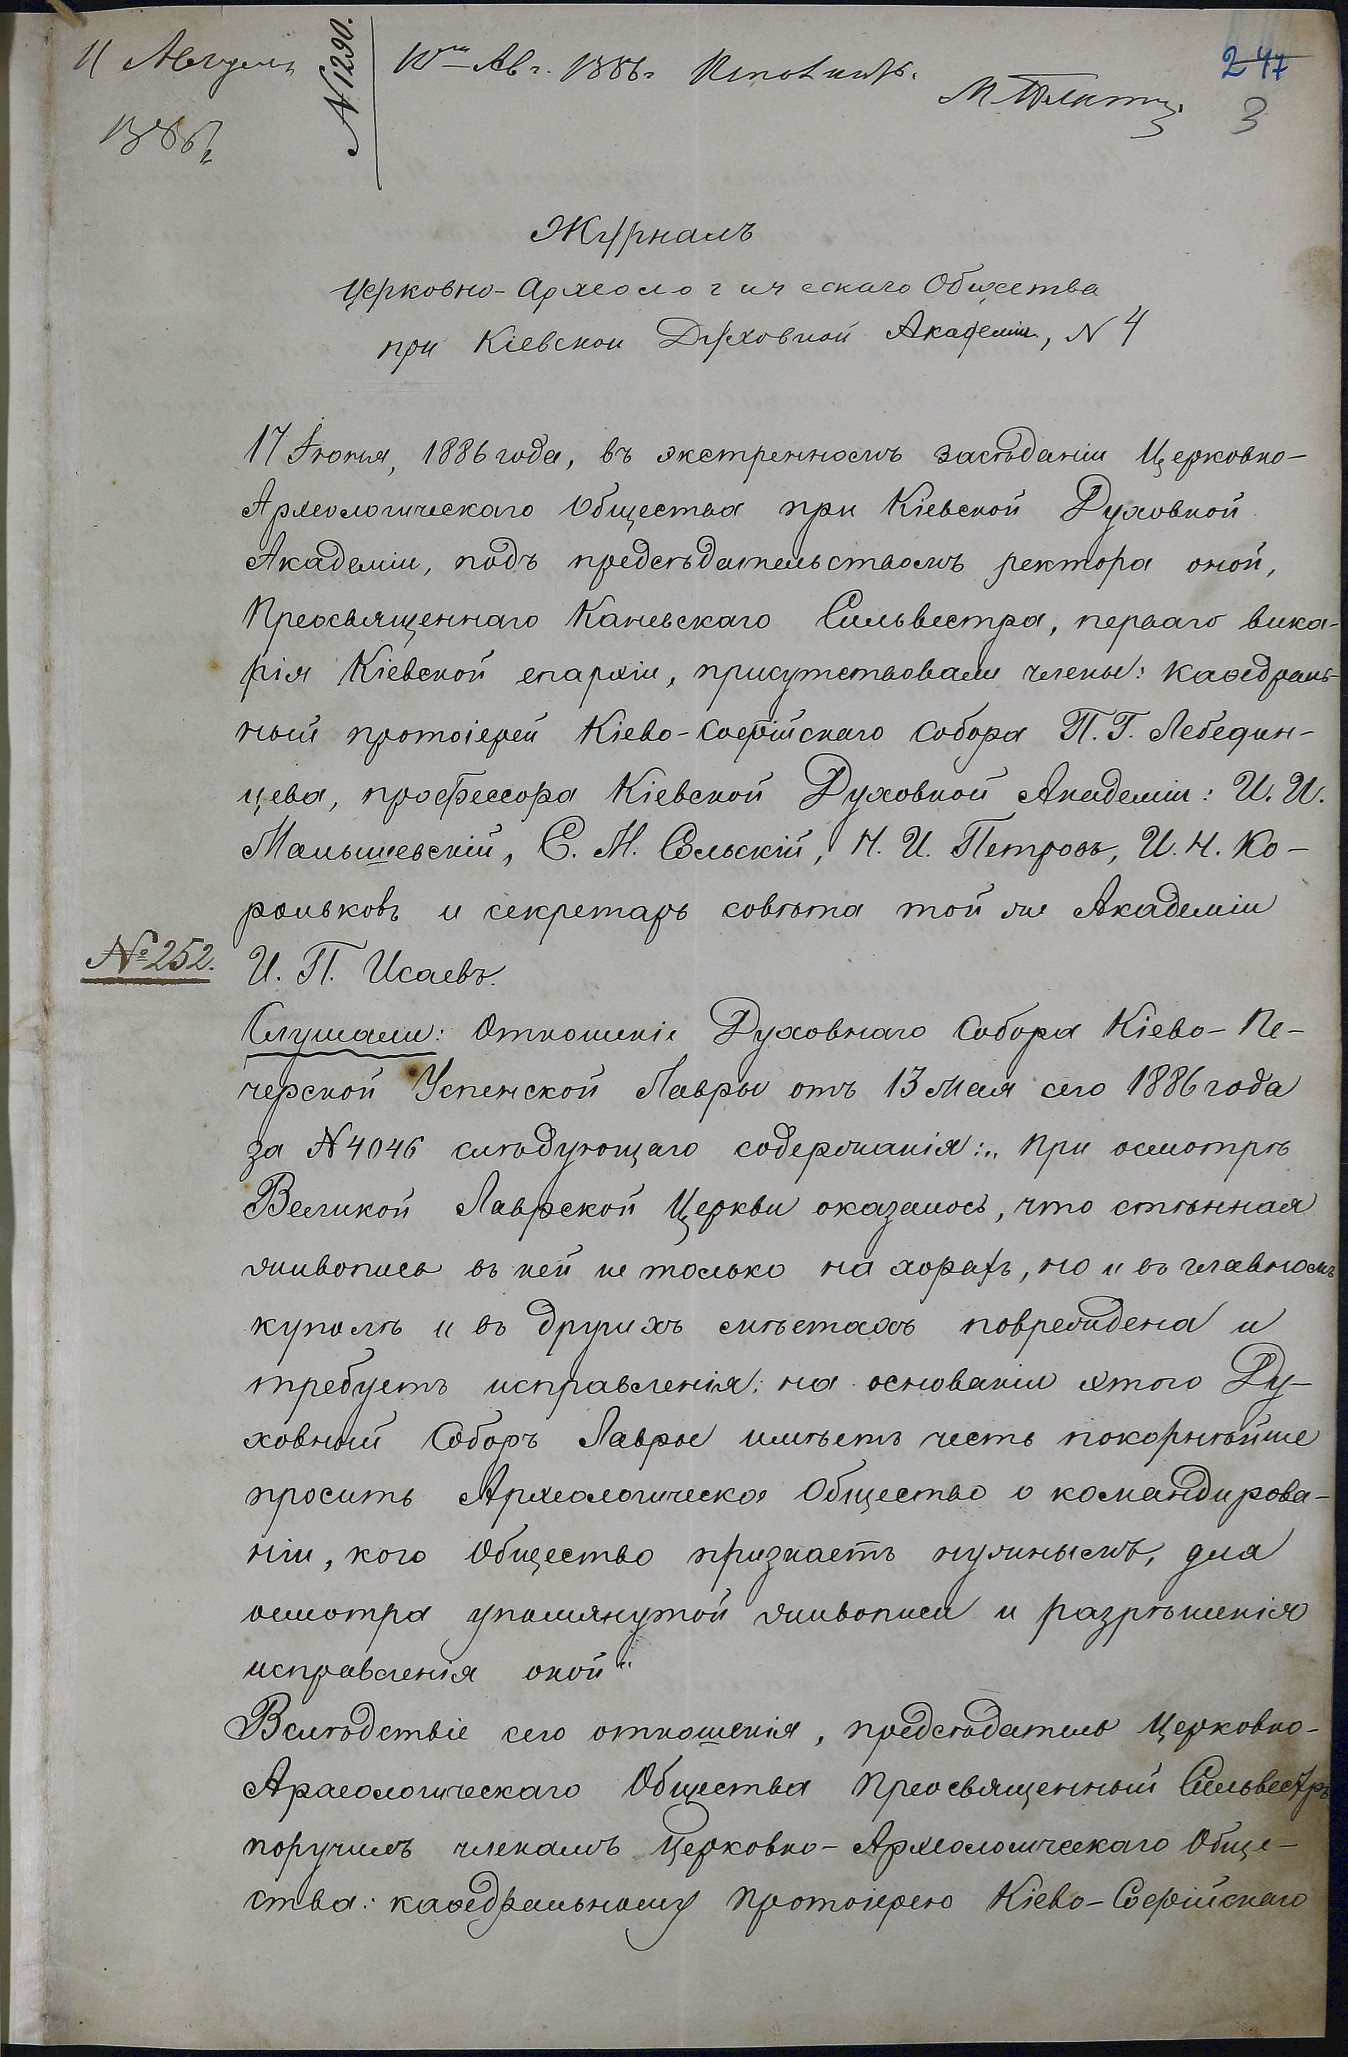 11 Августа
1886 г.
№ 1290.
10го Авг. 1886 г. Исполнить.
М. Платонъ
247
3
Журналъ
Церковно-Археологическаго Общества
при Кіевской Духовной Академіи, N 4
17 Іюня, 1886 года, въ экстренномъ засѣданіи Церковно-
Археологическаго Общества при Кіевской Духовной
Академіи, подъ предсѣдательствомъ ректора оной,
Преосвященнаго Каневскаго Сильвестра, перваго вика-
рія Кіевской епархіи, присутствовали члены: каѳедраль-
ный протоіерей Кіево-Софійскаго Собора П. Г. Лебедин-
цева, профессора Кіевской Духовной Академіи: И. И.
Малышевскій, С. М. Сольскій, Н. И. Петровъ, И. Н. Ко-
рольковъ и секретарь совѣта той же Академіи
№ 252.
И. П. Исаевъ.
Слушали: Отношеніе Духовнаго Собора Кіево-Пе-
черской Успенской Лавры отъ 13 Мая сего 1886 года
за N 4046 слѣдующаго содержанія: „При осмотрѣ
Великой Лаврской Церкви оказалось, что стѣнная
живопись въ ней не только на хорахъ, но и въ главномъ
куполѣ и въ другихъ мѣстахъ повреждена и
требуетъ исправленія; на основаніи этого Ду-
ховный Соборъ Лавры имѣетъ честь покорнѣйше
просить Археологическое Общество о командирова-
ніи, кого Общество признаетъ нужнымъ, для
осмотра упомянутой живописи и разрѣшенія
исправленія оной“
Вслѣдствіе сего отношенія, предсѣдатель Церковно-
Археологическаго Общества Преосвященный Сильвестръ
поручилъ членамъ Церковно-Археологическаго Обще-
ства: каѳедральному протоіерею Кіево-Софійскаго